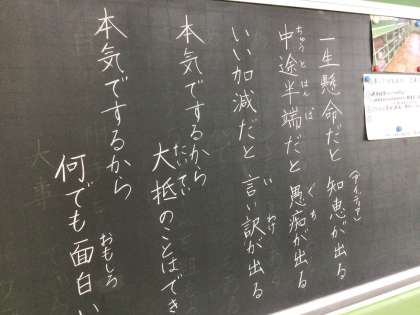 一生懸命だと 知恵が出る
(アイディア)
中途半端だと 愚痴が出る
ちゅうとはんぱ ぐち
いい加減だと 言い訳が出る
い わけ
本気でするから
大抵のことはでき
たいてい
本気でするから
何でも面白い
おもしろ
大事